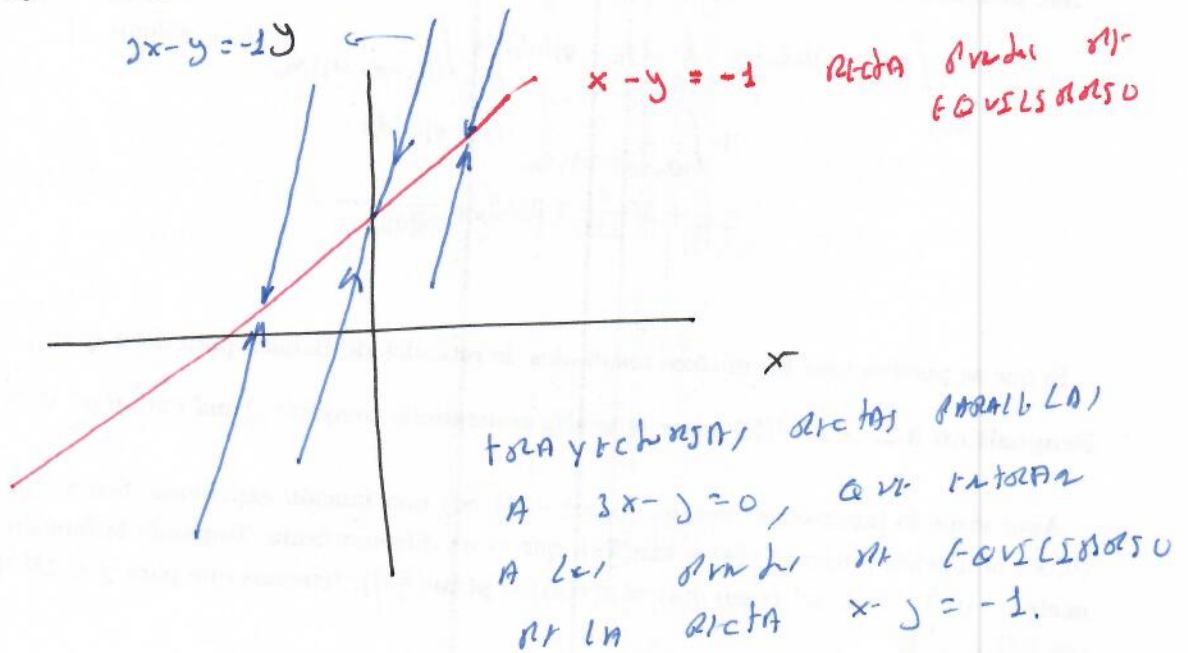 3x-y=-1 y
x-y = -1 RECTA PUNTOS DE
EQUILIBRIO
x
TRAYECTORIA, RECTAS PARALELAS
A 3x-y=0, QUE ENTRAN
A LOS PUNTOS DE EQUILIBRIO
DE LA RECTA x-y=-1.